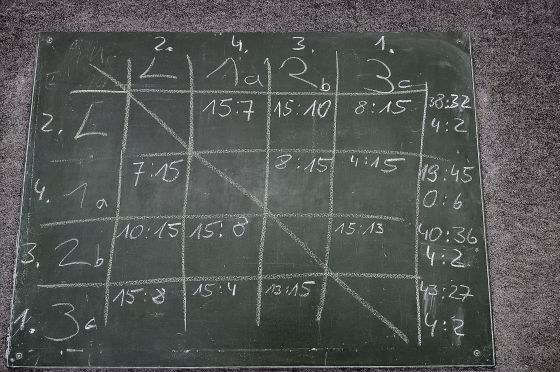 2. 4. 3. 1.
L 1a 2b 3c
2. L 15:7 15:10 8:15 38:32
4:2
4. 1a 7:15 8:15 4:15 19:45
0:6
3. 2b 10:15 15:8 15:13 40:36
4:2
1. 3c 15:8 15:4 13:15 43:27
4:2